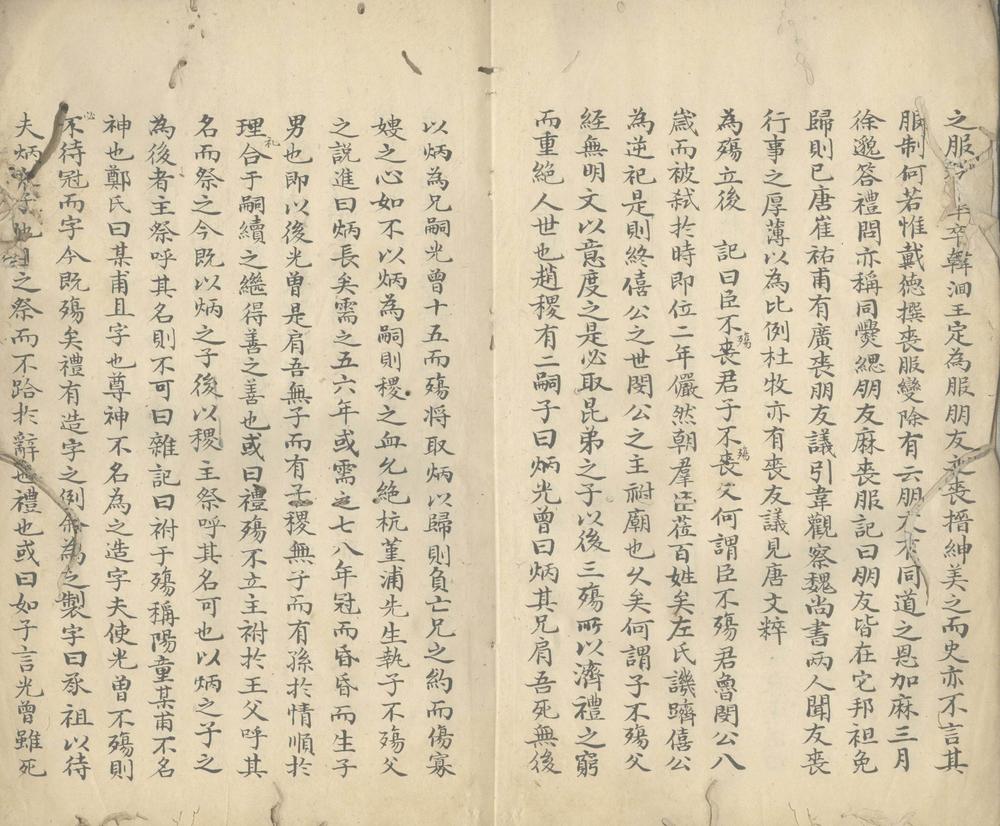 之服　卒韓洄王定為服朋友之喪搢紳美之而史亦不言其
服制何若惟戴德撰喪服變除有云朋友有同道之恩加麻三月
徐邈答禮問亦稱同爨緦朋友麻喪服記曰朋友皆在它邦袒免
歸則已唐崔祐甫有廣喪朋友議引韋觀察魏尚書兩人聞友喪
行事之厚薄以為比例杜牧亦有喪友議見唐文粹
為殤立後　記曰臣不喪君子不喪父何謂臣不殤君魯閔公八
殤
殤
歲而被弒於時即位二年儼然朝羣臣蒞百姓矣左氏譏躋僖公
為逆祀是則終僖公之世閔公之主祔廟也久矣何謂子不殤父
經無明文以意度之是必取昆弟之子以後三殤所以濟禮之窮
而重絕人世也趙稷有二嗣子曰炳光曾曰炳其兄肩吾死無後
以炳為兄嗣光曾十五而殤將取炳以歸則負亡兄之約而傷寡
嫂之心如不以炳為嗣則稷之血允絕杭堇浦先生執子不殤父
之説進曰炳長矣需之五六年或需之七八年冠而昏昏而生子
男也即以後光曾是肩吾無子而有子稷無子而有孫於情順於
理合于嗣續之繼得善之善也或曰禮殤不立主祔於王父呼其
礼
名而祭之今既以炳之子後以稷主祭呼其名可也以炳之子之
為後者主祭呼其名則不可曰雜記曰祔于殤稱陽童某甫不名
神也鄭氏曰某甫且字也尊神不名為之造字夫使光曾不殤則
必
不待冠而字今既殤矣禮有造字之例為之製字曰承祖以待
夫炳之子他日之祭而不跲於辭也禮也或曰如子言光曾雖死